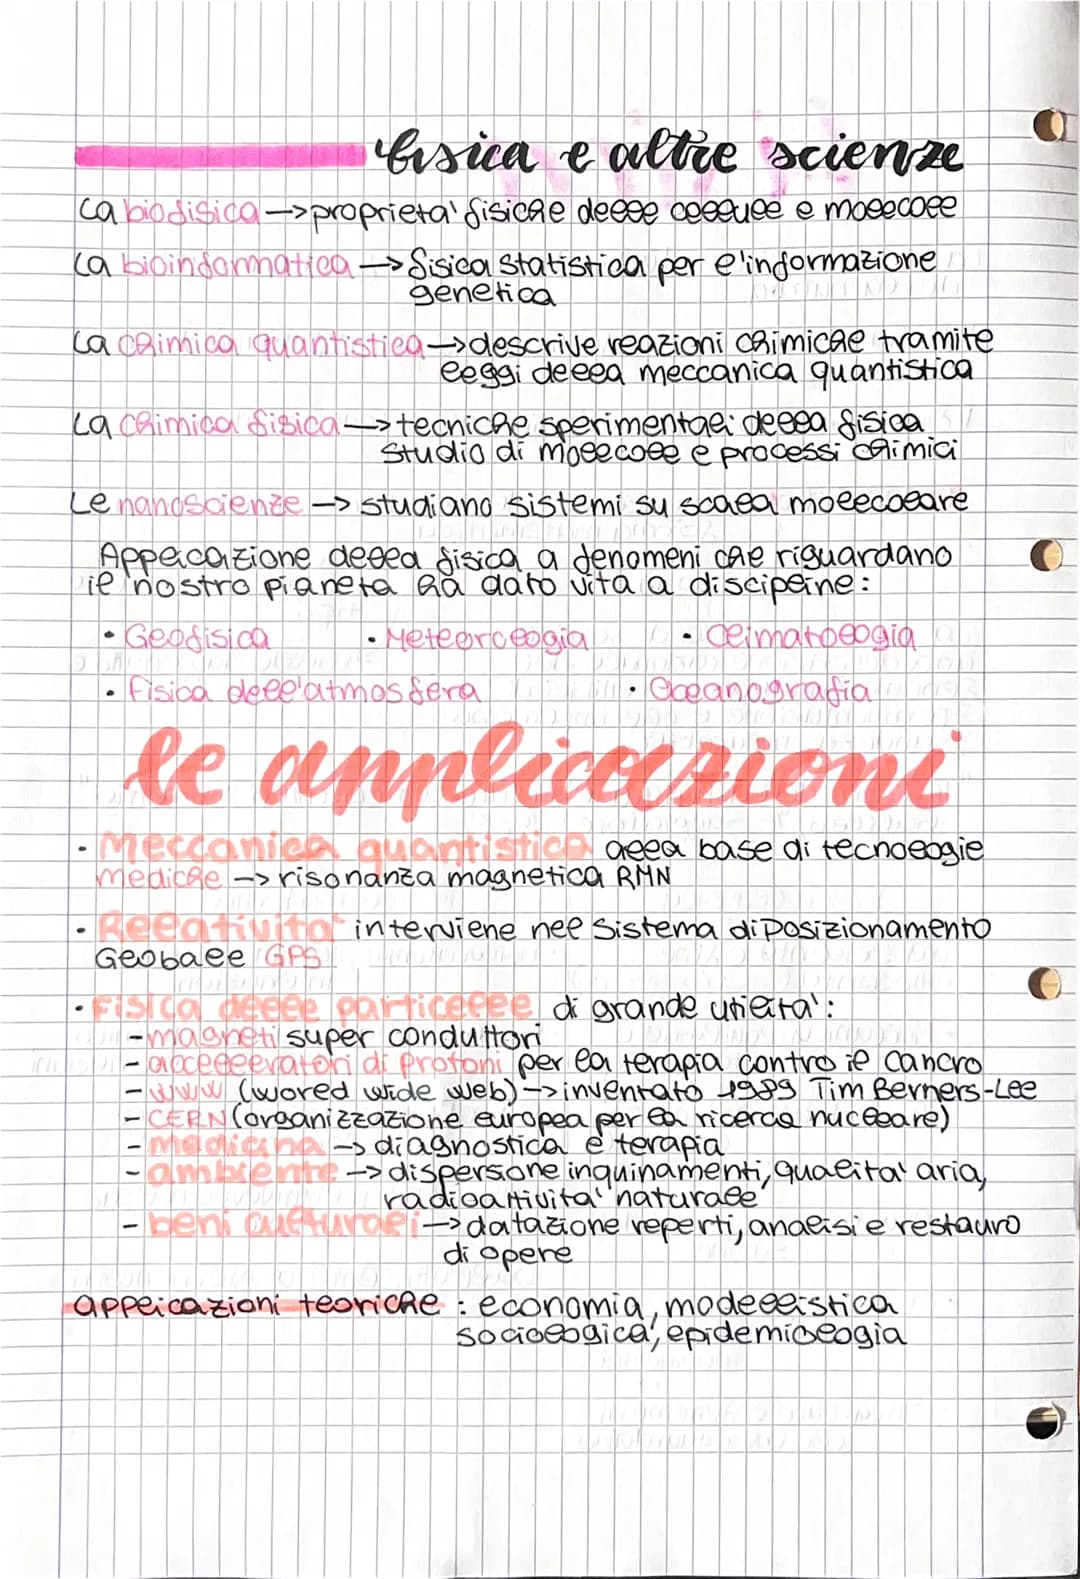 fisica e altre scienze
La biofisica → proprieta' fisiche delle cellule e molecole
La bioinformatica → fisica statistica per l'informazione
genetica
La chimica quantistica → descrive reazioni chimiche tramite
leggi della meccanica quantistica
La chimica fisica → tecniche sperimentali della fisica
studio di molecole e processi chimici
Le nanoscienze → studiano sistemi su scala molecolare
Applicazione della fisica a fenomeni che riguardano
il nostro pianeta ha dato vita a discipline:
• Geofisica • Meteorologia • Climatologia
• Fisica dell'atmosfera • Oceanografia
le applicazioni
• Meccanica quantistica alla base di tecnologie
mediche → risonanza magnetica RMN
• Relativita' interviene nel Sistema di Posizionamento
Globale GPS
• Fisica delle particelle di grande utilita':
- magneti super conduttori
- acceleratori di protoni per la terapia contro il cancro
- WWW (world wide web) → inventato 1989 Tim Berners-Lee
- CERN (organizzazione europea per la ricerca nucleare)
- medicina → diagnostica e terapia
- ambiente → dispersone inquinamenti, qualita' aria,
radioattivita' naturale
- beni culturali → datazione reperti, analisi e restauro
di opere
applicazioni teoriche : economia, modellistica
sociologica, epidemiologia